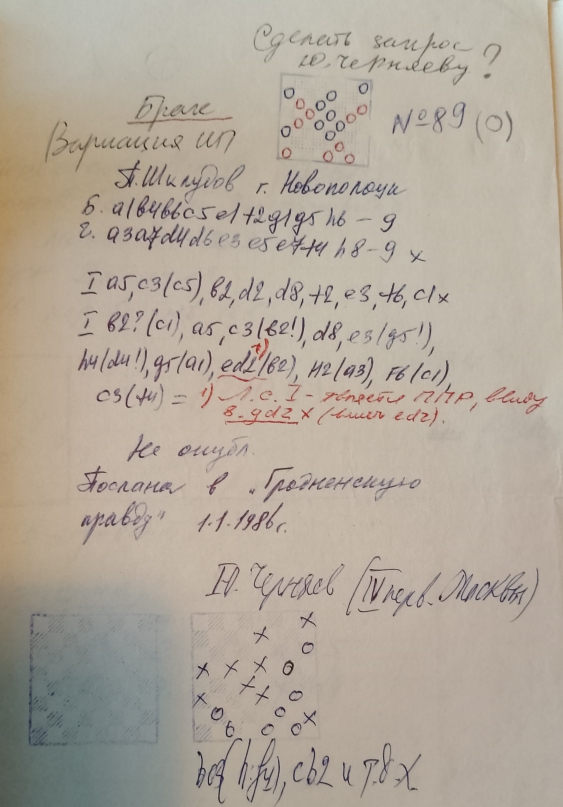 Сделать запрос
Ю. Черняеву?
Брак
№ 89 (О)
Вариация ИП
П. Шклудов г. Новополоцк
Б. a1b4b6c5e1f2g1g5h6 – 9
Ч. a3a7d4d6e3e5e7f4h8 – 9 x
I a5, c3 (c5), b2, d2, d8, f2, e3, f6, c1x
I b2? (c1), a5, c3 (b2!), d8, e3 (g5!),
h4 (d4!), g5 (a1), ed2 1) (b2), h2 (a3), f6 (c1)
c3 (f4) = 1) Л.с. I – является ППР, ввиду
8. gd2 x (вместо ed2).
Не опубл.
Послана в "Гродненскую
правду" 1.1.1986г.
Ю. Черняев (IV перв. Москвы)